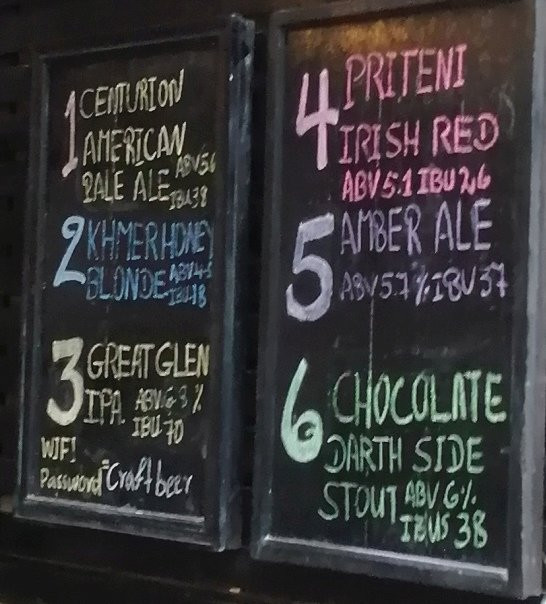 1 CENTURION
AMERICAN
PALE ALE ABV 5.6
IBU 38
2 KHMER HONEY
BLONDE ABV 4.5
IBU 18
3 GREAT GLEN
IPA ABV 6.3 %
IBU 70
WIFI
Password = Craft beer
4 PRITENI
IRISH RED
ABV 5.1 IBU 26
5 AMBER ALE
ABV 5.7 % IBU 37
6 CHOCOLATE
DARTH SIDE
STOUT ABV 6%
IBUS 38